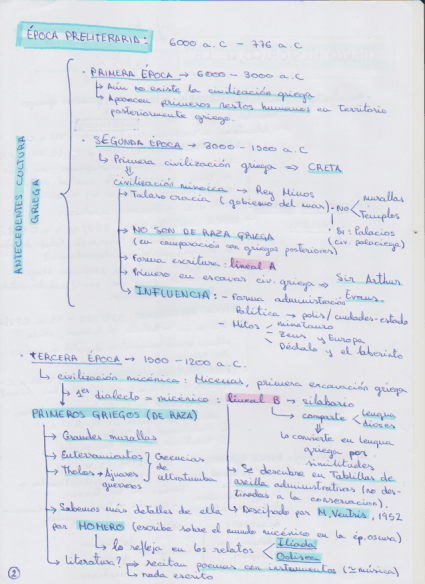 ÉPOCA PRELITERARIA: 6000 a.C - 776 a.C
ANTECEDENTES CULTURA GRIEGA
· PRIMERA ÉPOCA → 6000 - 3000 a.C
↳ Aún no existe la civilización griega
↳ Aparecen primeros restos humanos en territorio
posteriormente griego.
· SEGUNDA ÉPOCA → 3000 - 1500 a.C
↳ Primera civilización griega ⇒ CRETA
civilización minoica → Rey Minos
→ Talasocracia (gobierno del mar) - NO < murallas
Templos
Sí: Palacios
(civ. palaciega)
→ NO SON DE RAZA GRIEGA
(en comparación con griegos posteriores)
→ Forma escritura: lineal A
→ Primero en escavar civ. griega ⇒ Sir Arthur
Evans.
→ INFLUENCIA: - Forma administración
Política → polis/ciudades-estado
- Mitos → minotauro
Zeus y Europa
Dédalo y el laberinto
· TERCERA ÉPOCA → 1500 - 1200 a.C.
↳ civilización micénica: Micenas, primera excavación griega
↳ 1er dialecto = micénico: lineal B → silabario
→ comparte < lengua
dioses
↳ lo convierte en lengua
griega por
similitudes
PRIMEROS GRIEGOS (DE RAZA)
→ Grandes murallas
→ Enterramientos
→ Tholos + Ajuares
guerreros
Creencias
de
ultratumba
→ Se descubre en Tablillas de
arcilla administrativas (no des-
tinadas a la conservación).
→ Descifrado por M. Ventris, 1952
→ Sabemos más detalles de ella
por HOMERO (escribe sobre el mundo micénico en la ép. oscura)
↳ lo refleja en los relatos < Ilíada
Odisea
→ Literatura? → recitan poemas con instrumentos (≃ música)
→ nada escrito
①